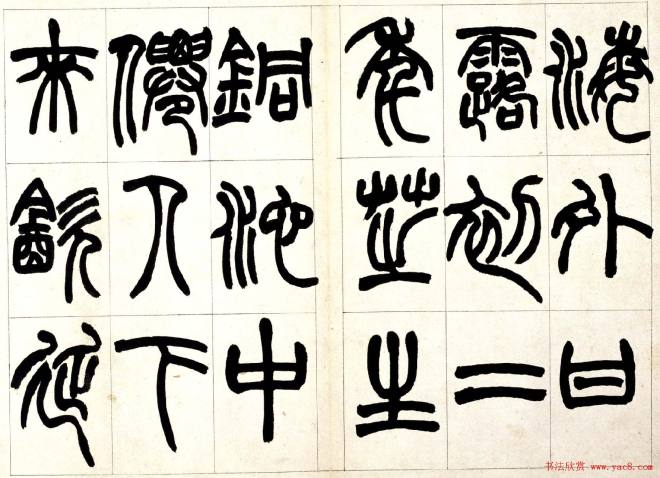 海外甘
露初二
年芝生
銅池中
僊人下
來㱃延
书法欣赏 www.yac8.com